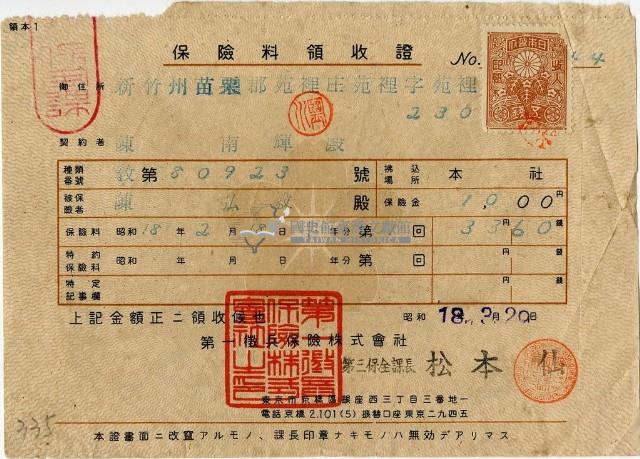 領本1
保險料領收證
No.
44
御住所
新竹州苗栗郡苑裡庄苑裡字苑裡
230
契約者
陳 南輝 殿
種類番號
教 第 80923 號
拂込場所
本社
被保險者
陳 弘 殿
保險金
1,000 円
保險料
昭和 18 年 2 月 18 日 年分 第 回
33 円 60 錢
特約保險料
昭和 年 月 日 年分 第 回
円 錢
特定記事欄
円 錢
上記金額正ニ領收候也
昭和 18. 3月 20日
第一徵兵保險株式會社
第三保全課長 松本 仙
東京市京橋區銀座西三丁目三番地一
電話京橋2,101(5) 振替口座東京二九四五
本證書面ニ改竄アルモノ、課長印章ナキモノハ無効デアリマス
335